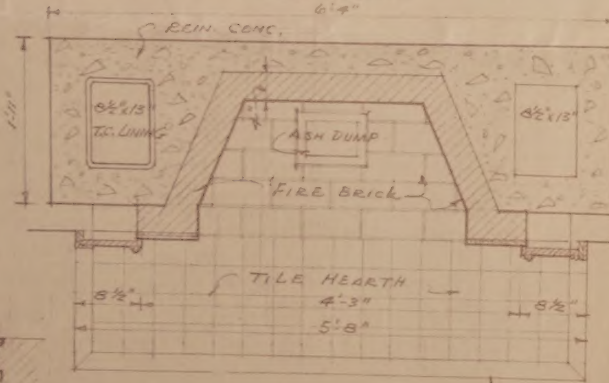 6'-4"
REIN. CONC.
1'-11"
8½" x 13"
T.C. LINING
ASH DUMP
8½" x 13"
FIRE BRICK
TILE HEARTH
8½"
4'-3"
8½"
5'-8"